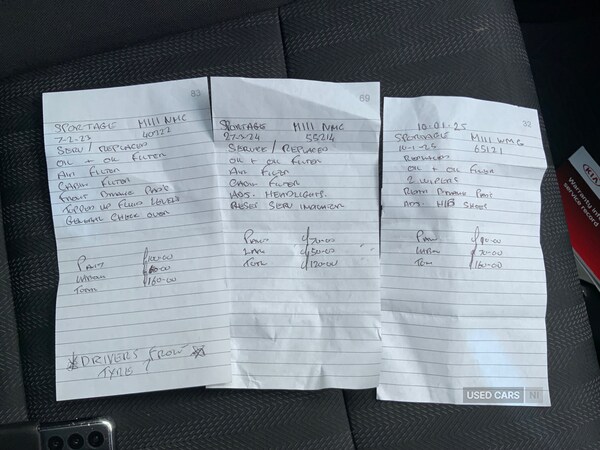 63
SPORTAGE M111 NMC
7-2-23 40322
SERV / REPLACED
OIL + OIL FILTER
AIR FILTER
CABIN FILTER
FRONT BRAKE PADS
TOPPED UP FLUID LEVELS
GENERAL CHECK OVER
PARTS £100-00
LABOUR £60-00
TOTAL £160-00
DRIVERS FRONT
TYRE
69
SPORTAGE M111 NMC
27-2-24 55214
SERVICE / REPLACED
OIL + OIL FILTER
AIR FILTER
CABIN FILTER
ADJ. HEADLIGHTS.
RESET SERV INDICATOR
PARTS £70-00
LAB £50-00
TOTAL £120-00
32
10-01-25
SPORTAGE M111
10-1-25 65121
REPLACED
OIL + OIL FILTER
2 WIPERS
REAR BRAKE PADS
ADJ. H/B SHOES
PARTS £90-00
LABOUR £70-00
TOTAL £160-00
KIA
Warranty and
service record
USED CARS NI